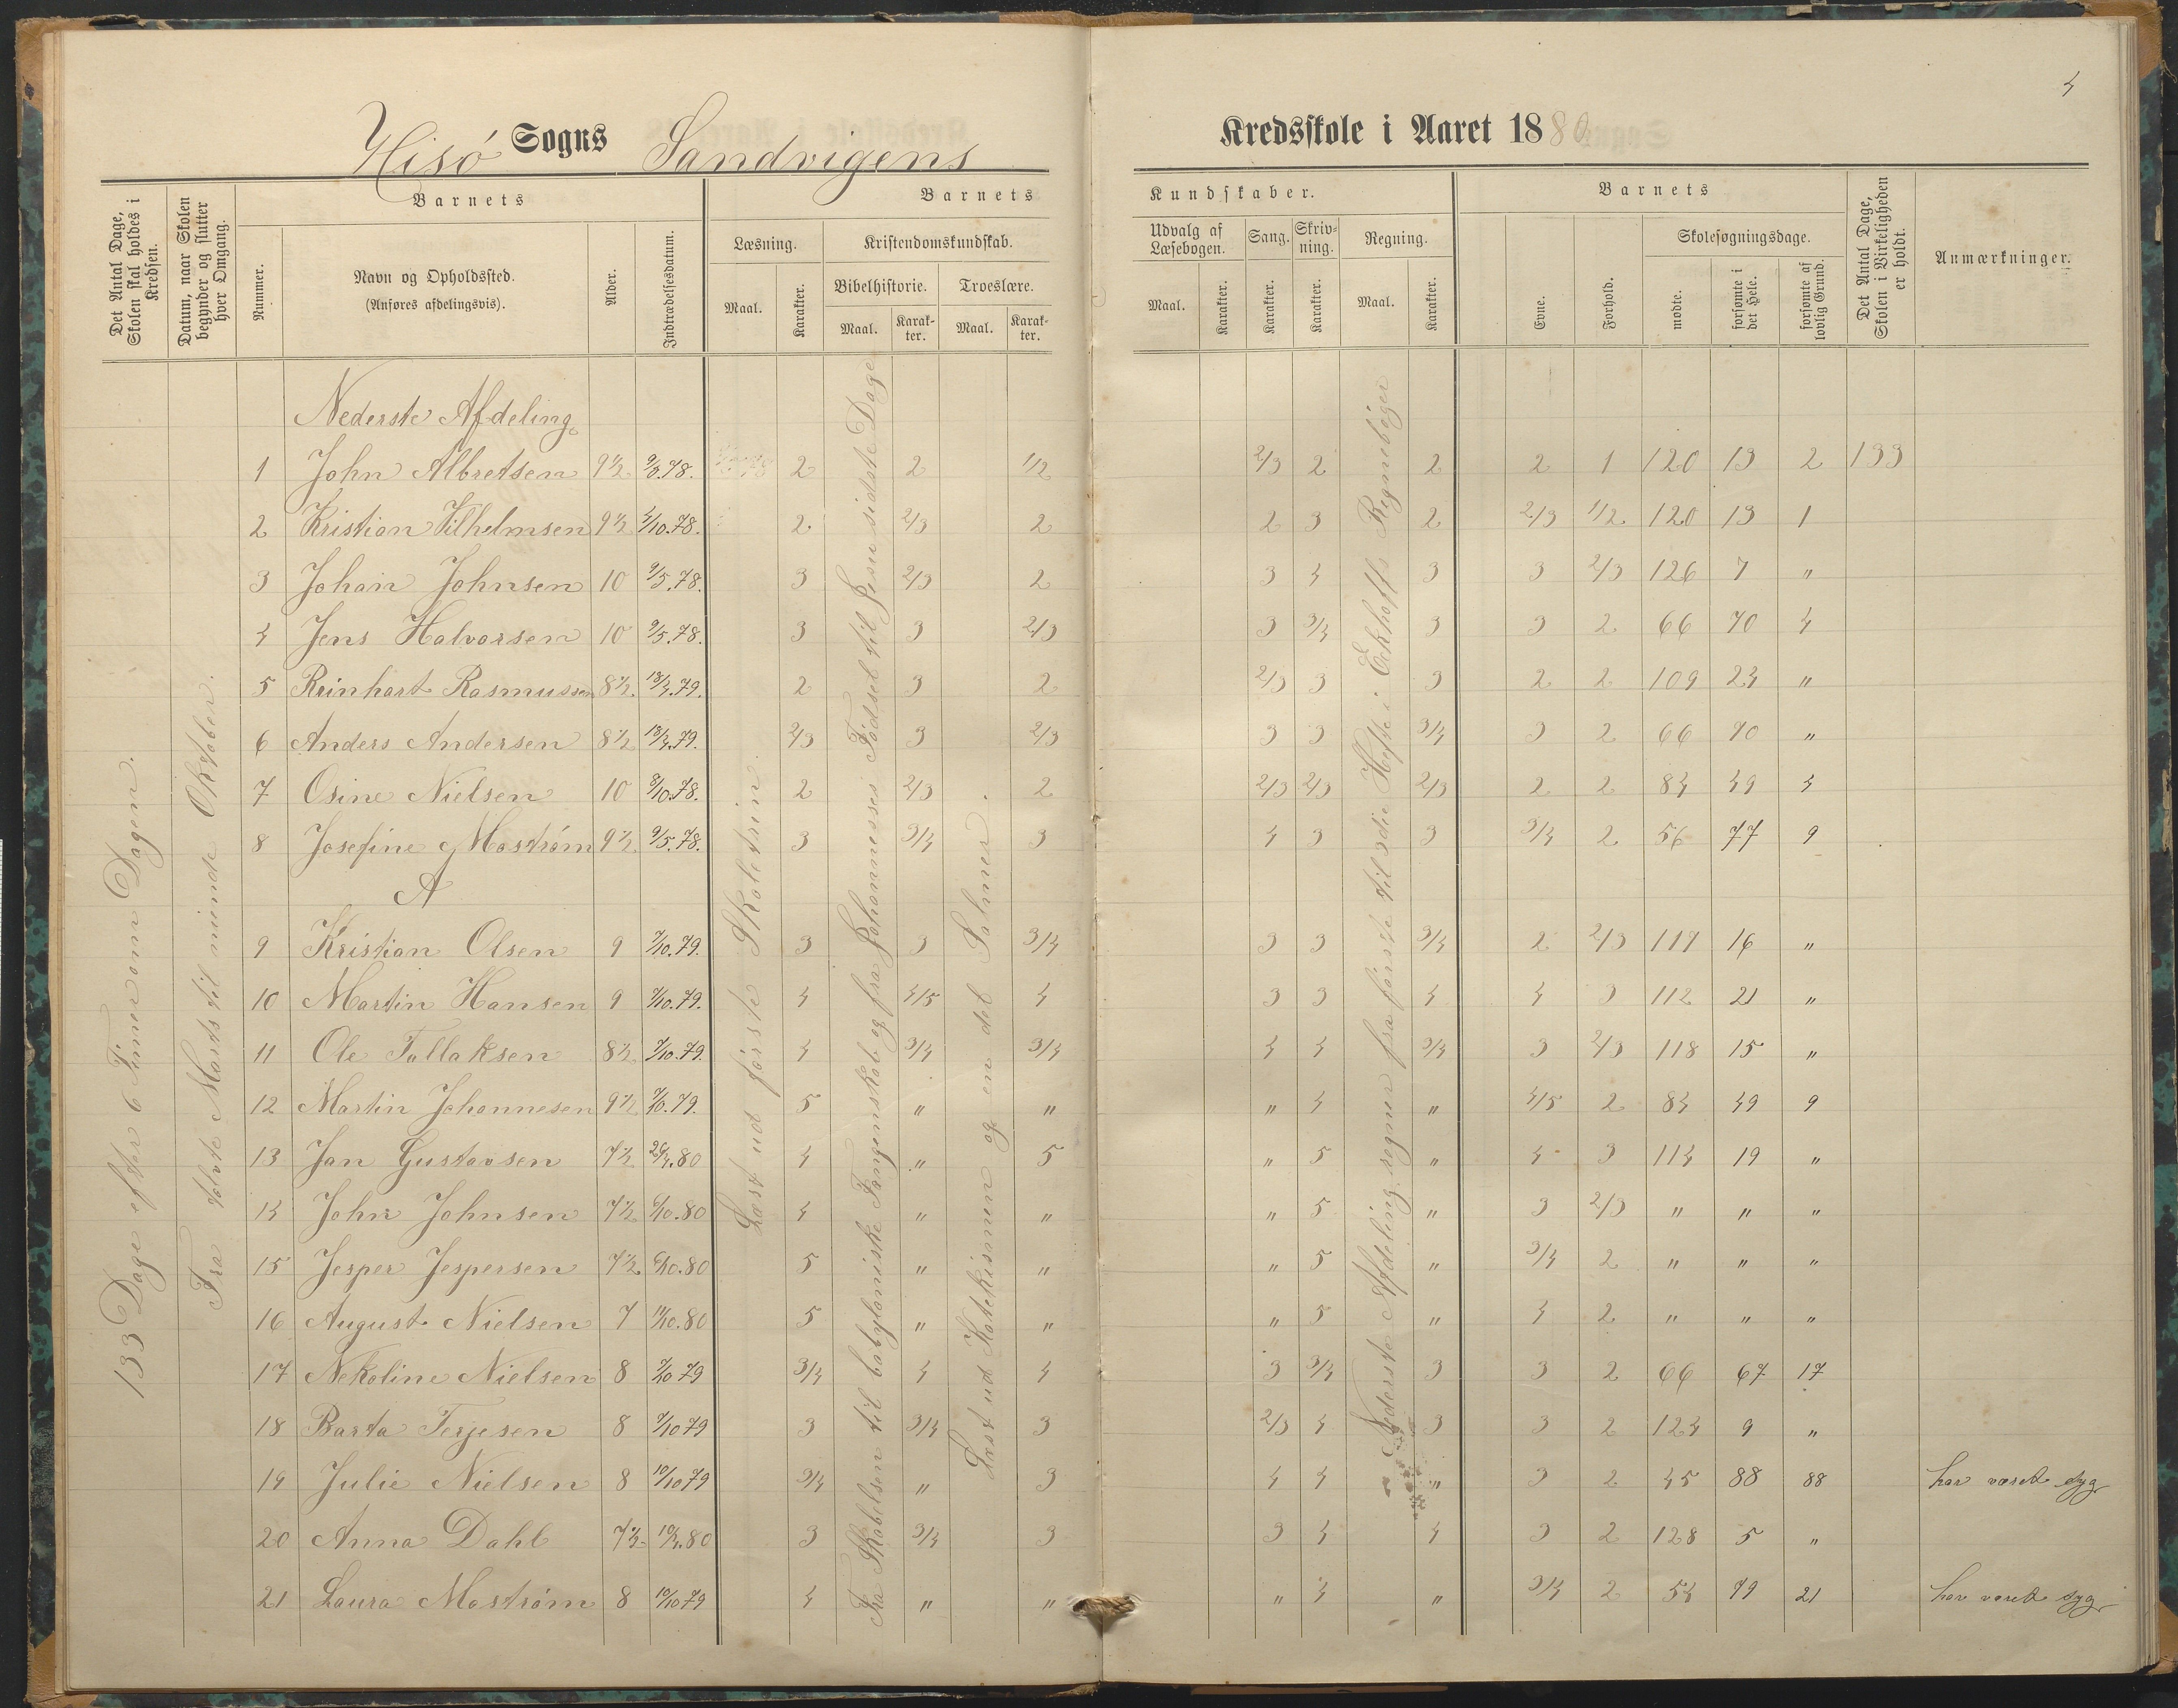 4
Hisø Sogns Sandvigens Kredsskole i Aaret 1880
Det Antal Dage, Skolen skal holdes i Kredsen.
Datum, naar Skolen begynder og slutter hver Omgang.
Barnets
Nummer.
Navn og Opholdssted.
(Anføres afdelingsvis).
Alder.
Indtrædelsesdatum.
Barnets Kundskaber.
Læsning.
Maal.
Karakter.
Kristendomskundskab.
Bibelhistorie.
Maal.
Karakter.
Troeslære.
Maal.
Karakter.
Udvalg af Læsebogen.
Maal.
Karakter.
Sang.
Karakter.
Skrivning.
Karakter.
Regning.
Maal.
Karakter.
Barnets
Evne.
Forhold.
Skolesøgningsdage.
mødte.
forsømte i det Hele.
forsømte af lovlig Grund.
Det Antal Dage, Skolen i Virkeligheden er holdt.
Anmærkninger.
133 Dage efter 6 Timer om Dagen.
Fra tolvte Marts til niende Oktober.
Læst ud første Skoletrin.
Fra Skabelsen til babyloniske Fangenskab og fra Johannesses Fødsel til Jesu sidste Dage
Læst ud Katekismen og en del Salmer.
Nederste Afdeling regner fra første til 3die Hefte i Eckhoffs Regnebøger
Nederste Afdeling.
1 John Albretsen 9½ 9/5.78. 2 2 1/2 2/3 2 2 2 1 120 13 2 133
2 Kristian Vilhelmsen 9½ 4/10.78. 2 2/3 2 2 3 2 2/3 1/2 120 13 1
3 Johan Johnsen 10 9/5.78. 3 2/3 2 3 4 3 3 2/3 126 7 "
4 Jens Halvorsen 10 9/5.78. 3 3 2/3 3 3/4 3 3 2 66 70 4
5 Reinhart Rasmussen 8½ 18/4.79. 2 3 2 2/3 3 3 2 2 109 24 "
6 Anders Andersen 8½ 18/4.79. 2/3 3 2/3 3 3 3/4 3 2 66 70 "
7 Osine Nielsen 10 8/10.78. 2 2/3 2 2/3 2/3 2/3 2 2 84 49 4
8 Josefine Mostrøm 9½ 9/5.78. 3 3/4 3 4 3 3 3/4 2 56 77 9
A
9 Kristian Olsen 9 7/10.79. 3 3 3/4 3 3 3/4 2 2/3 117 16 "
10 Martin Hansen 9 7/10.79. 4 4/5 4 3 3 4 4 3 112 21 "
11 Ole Tallaksen 8½ 7/10.79. 4 3/4 3/4 4 4 3/4 3 2/3 118 15 "
12 Martin Johannesen 9½ 7/10.79. 5 " " " 4 " 4/5 2 84 49 9
13 Jan Gustavsen 7½ 26/4.80 4 " 5 " 5 " 4 3 114 19 "
14 John Johnsen 7½ 6/10.80 4 " " " 5 " 3 2/3 " " "
15 Jesper Jespersen 7½ 6/10.80 5 " " " 5 " 3/4 2 " " "
16 August Nielsen 7 11/10.80 5 " " " 5 " 4 2 " " "
17 Nekoline Nielsen 8 7/10 79 3/4 4 4 3 3/4 3 3 2 66 67 17
18 Barta Terjesen 8 7/10 79 3 3/4 3 2/3 4 3 3 2 124 9 "
19 Julie Nielsen 8 10/10 79 3/4 " 3 4 4 " 3 2 45 88 88 har været syg
20 Anna Dahl 7½ 19/4.80 3 3/4 3 3 4 4 3 2 128 5 "
21 Laura Mostrøm 8 10/10 79 4 " " " 4 " 3/4 2 54 79 21 har været syg